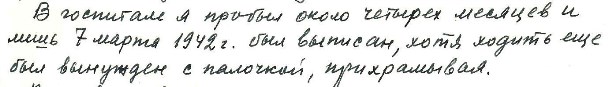 В госпитале я пробыл около четырех месяцев и
лишь 7 марта 1942 г. был выписан, хотя ходить еще
был вынужден с палочкой, прихрамывая.